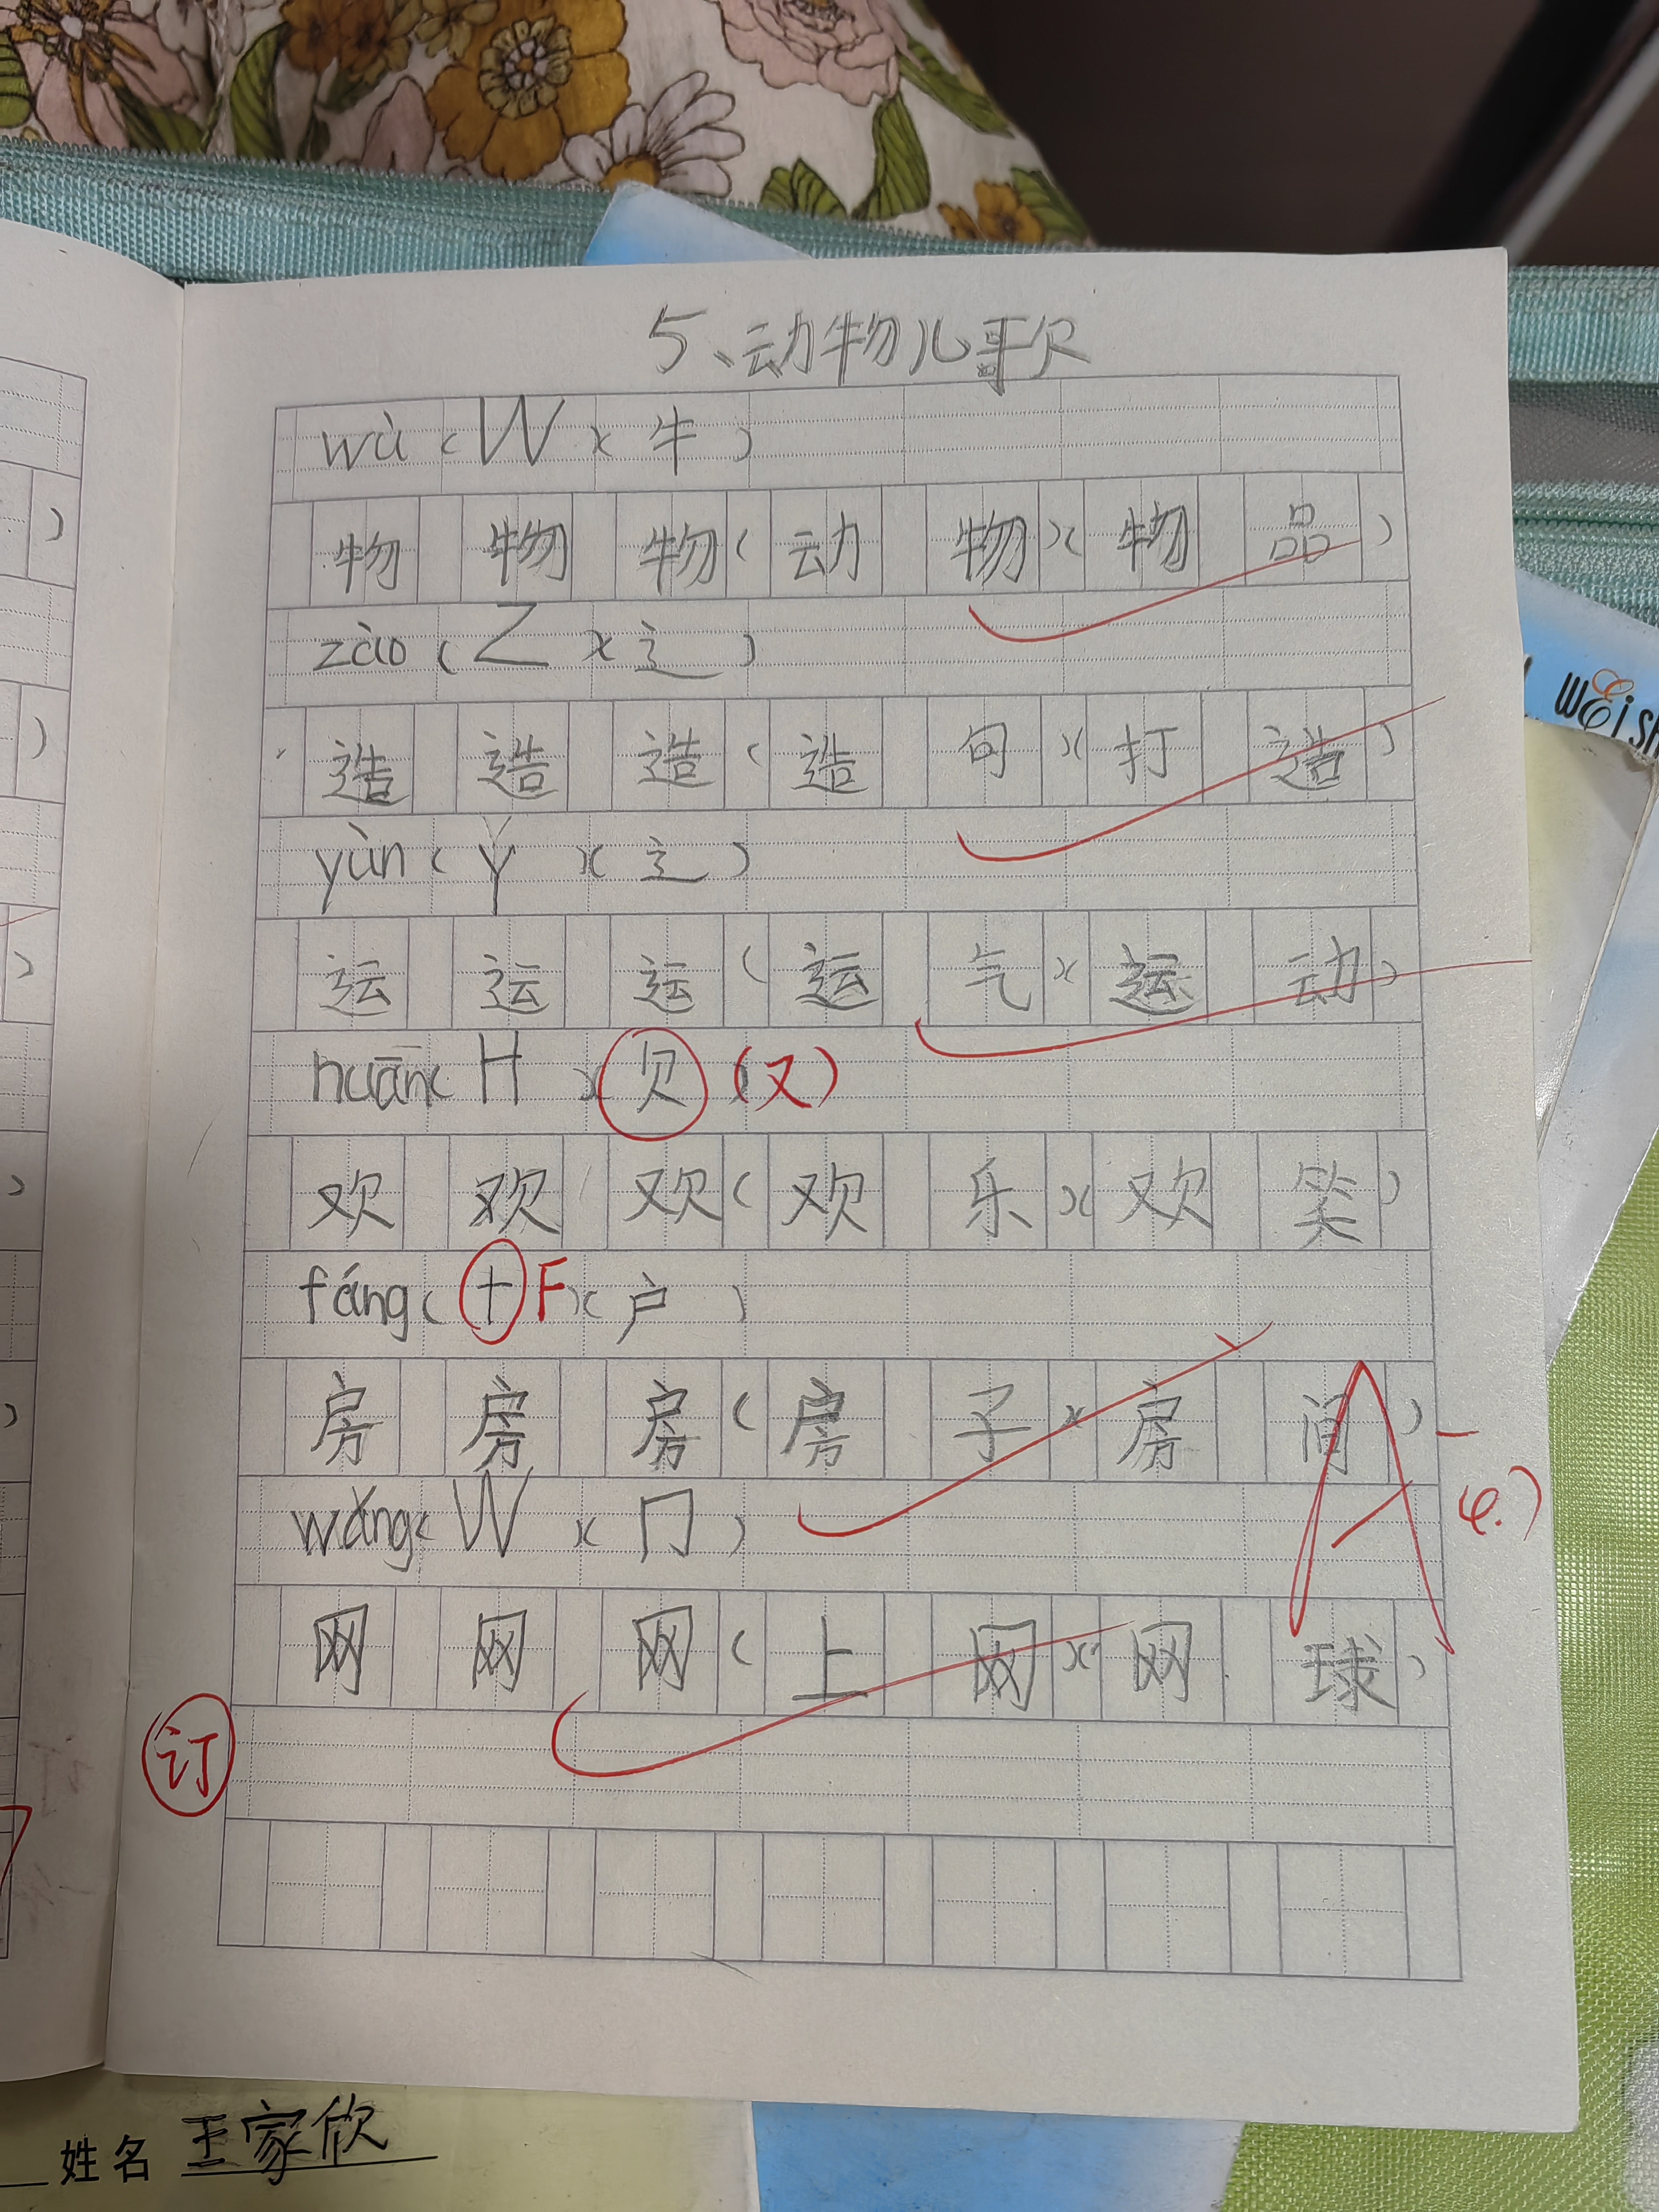 5、动物儿歌
wù（W）（牛）
物 物 物（动物）（物品）
zào（Z）（辶）
造 造 造（造句）（打造）
yùn（Y）（辶）
运 运 运（运气）（运动）
huān（H）（欠）（又）
欢 欢 欢（欢乐）（欢笑）
fáng（十 F）（户）
房 房 房（房子）（房间）
A-
wǎng（W）（冂）
网 网 网（上网）（网球）
订
姓名 王家欣